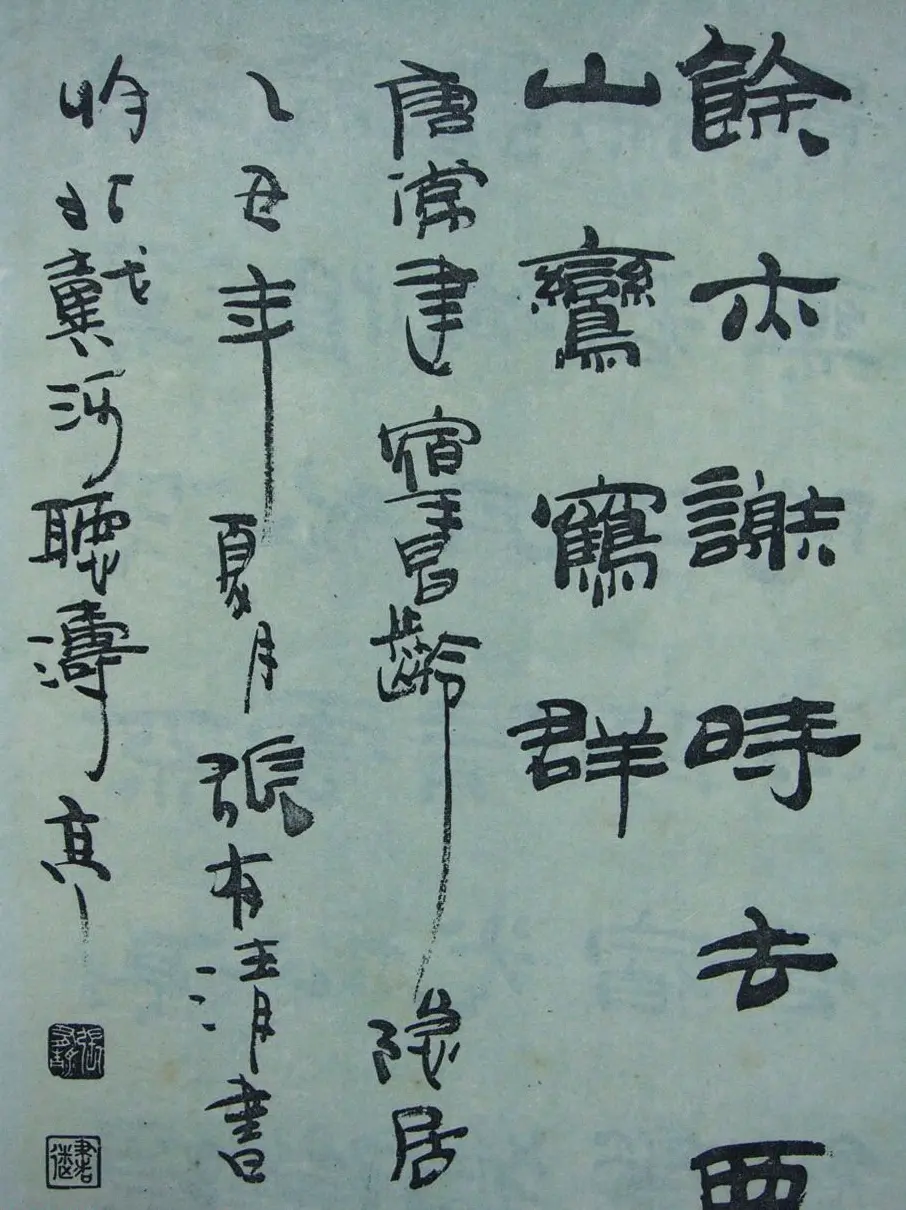 餘亦謝時去西
山鸞鶴群
唐常建宿王昌齡隱居
乙丑年夏月張有清書
於北戴河聽濤亭